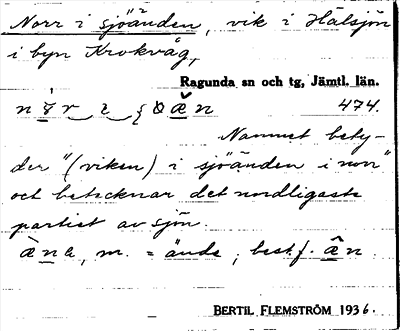 Norr i sjöänden, vik i Hälsjön
i byn Krokvåg,
Ragunda sn och tg, Jämtl. län.
474.
Namnet bety-
der "(viken) i sjöänden i norr"
och betecknar det nordligaste
partiet av sjön.
æ̀na, m. = ände; best. f. æ̂n.
BERTIL FLEMSTRÖM 1936.